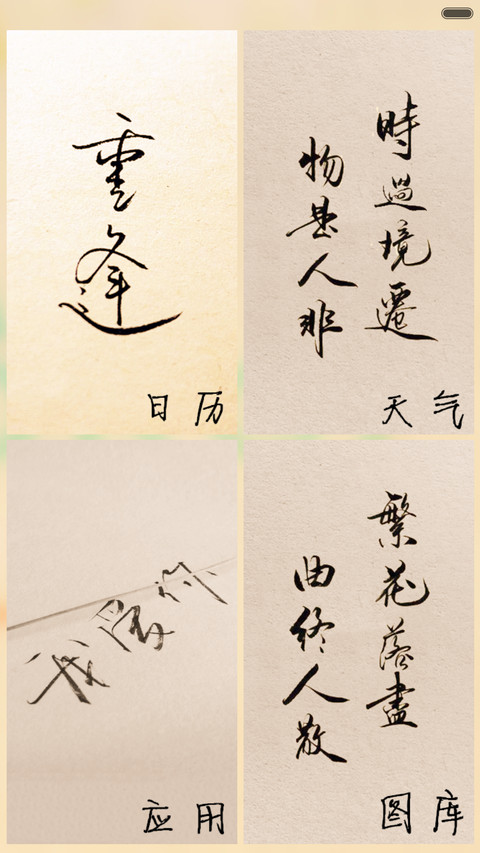 重逢
日历
時過境遷
物是人非
天气
應用
繁花落盡
曲終人散
图库